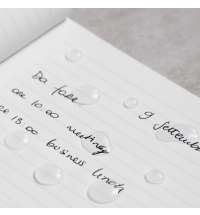 Da fare
9 settembre
ore 10.00 meeting
ore 13.00 business lunch